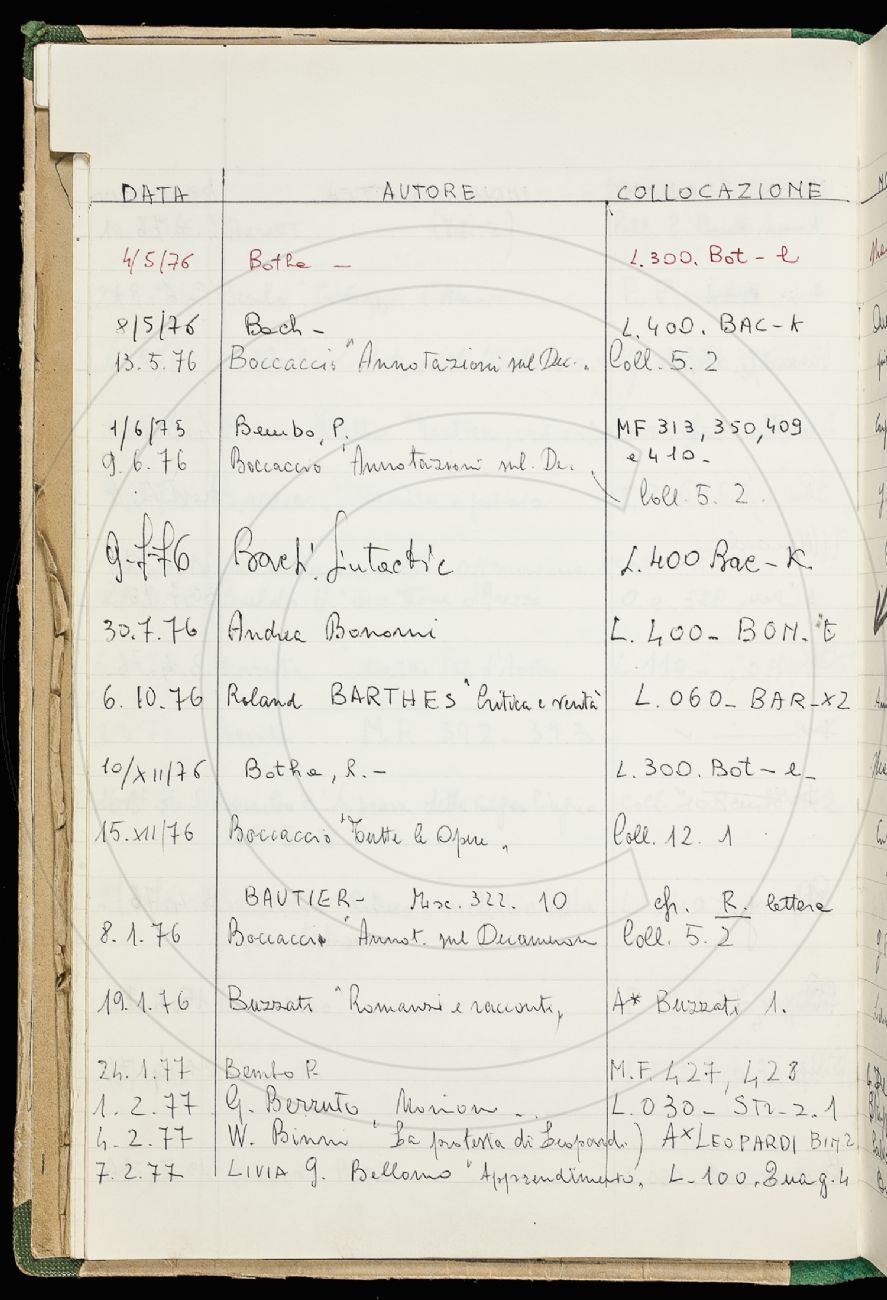 DATA AUTORE COLLOCAZIONE
4/5/76 Botha - L.300. Bot - e
8/5/76 Bach - L.400. BAC-K
13.5.76 Boccaccio "Annotazioni sul Dec. " Coll. 5. 2
1/6/73 Bembo, P. MF 313, 350, 409
e 410-
9.6.76 Boccaccio "Annotazioni sul. De. "
Coll. 5. 2.
9-7-76 Bach. L.400 Bac-K.
30.7.76 Andrea Bonomi L. 400- BON. E
6.10.76 Roland BARTHES "Critica e verità" L. 060- BAR-X2
10/XII/76 Botha, R.- L.300. Bot - e-
15.XII/76 Boccaccio "Tutte le Opere " Coll. 12. 1
BAUTIER- Misc. 322. 10 cfr. R. lettere
8.1.76 Boccaccio "Annot. sul Decameron Coll. 5. 2
19.1.76 Buzzati "Romanzi e racconti" A* Buzzati 1.
24.1.77 Bembo P. M.F. 427, 428
1.2.77 G. Berruto L.030- STR-2.1
4.2.77 W. Binni "La protesta di Leopardi) A*LEOPARDI BIN.2
7.2.77 LIVIA G. Bellomo "Apprendimento" L-100.